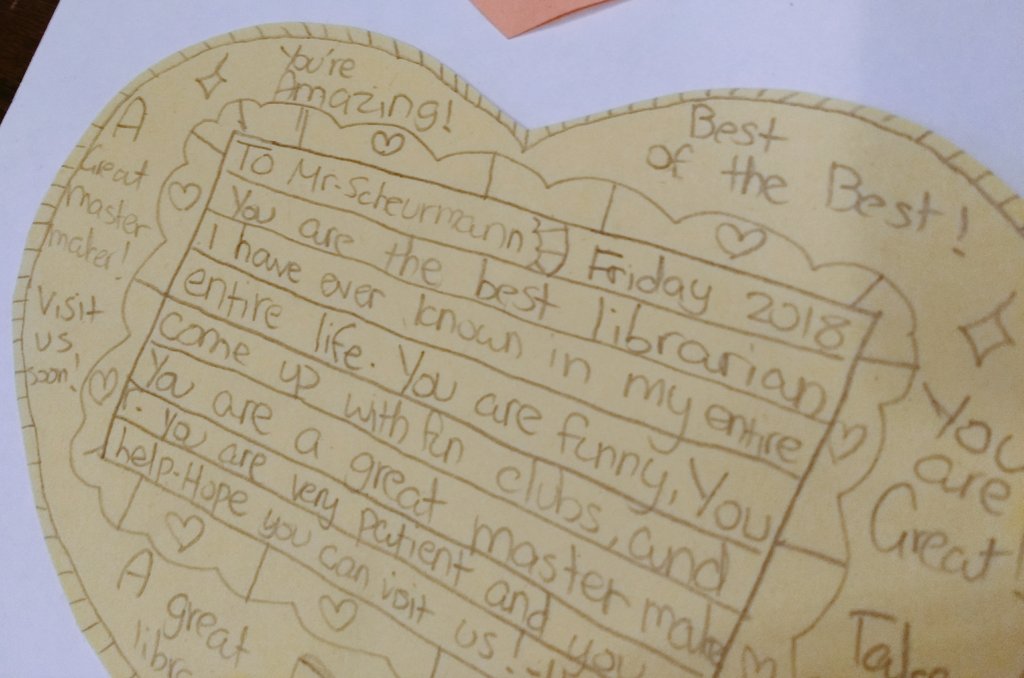 You're
Amazing!
Best
of the Best!
A
Great
master
maker!
Visit
us,
soon!
To Mr. Scheurmann Friday 2018
You are the best librarian
I have ever known in my entire
entire life. You are funny, You
come up with fun clubs, and
You are a great master make
r. You are very patient and you
help. Hope you can visit us!
You
are
Great!
A
great